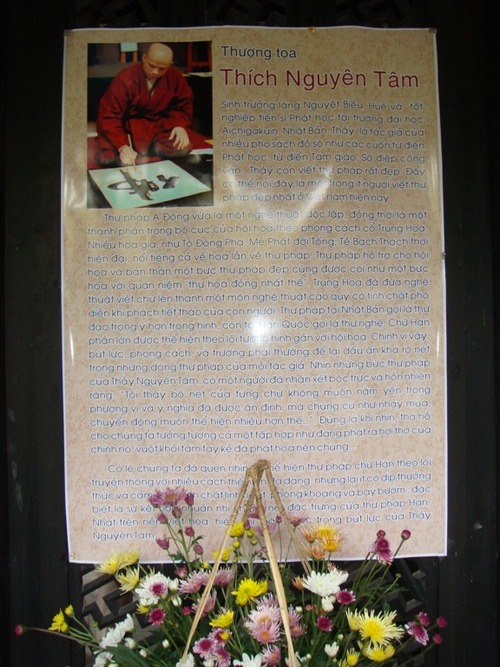 Thượng tọa
Thích Nguyên Tâm
Sinh trưởng làng Nguyệt Biều, Huế và tốt
nghiệp tiến sĩ Phật học tại trường đại học
Aichigakuin, Nhật Bản. Thầy là tác giả của
nhiều pho sách đồ sộ như các cuốn tự điển
Phật học, tự điển Tam giáo, Sớ điệp công
văn... Thầy còn viết thư pháp rất đẹp. Đây
có thể nói đây là một trong ít người viết thư
pháp đẹp nhất ở Việt Nam hiện nay.
Thư pháp Á Đông vừa là một nghệ thuật độc lập, đồng thời là một
thành phần trong bố cục của hội họa theo phong cách cổ Trung Hoa.
Nhiều họa gia, như Tô Đông Pha, Mễ Phất đời Tống, Tề Bạch Thạch thời
hiện đại, nổi tiếng cả về họa lẫn về thư pháp. Thư pháp hỗ trợ cho hội
họa và bản thân một bức thư pháp đẹp cũng được coi như một bức
họa với quan niệm "thư họa đồng nhất thể". Trung Hoa đã đưa nghệ
thuật viết chữ lên thành một môn nghệ thuật cao quý có tính chất phổ
diễn khí phách tiết tháo của con người. Thư pháp tại Nhật Bản gọi là thư
đạo trọng ý hơn trọng hình, còn tại Hàn Quốc gọi là thư nghệ. Chữ Hán
phần lớn được thể hiện theo lối tượng hình gắn với hội họa. Chính vì vậy
bút lực, phong cách, và trường phái thường để lại dấu ấn khá rõ nét
trong những dòng thư pháp của mỗi tác giả. Nhìn những bức thư pháp
của Thầy Nguyên Tâm, có một người đã nhận xét bộc trực và hồn nhiên
rằng, "Tôi thấy bộ nét của từng chữ không muốn nằm yên trong
phương vị và ý nghĩa đã được ấn định, mà chúng cứ như nhảy múa,
chuyển động muốn thể hiện nhiều hơn thế...". Đúng là khi nhìn, thả hồ
cho chúng ta tưởng tượng cả một tập hợp như đang phát ra hơi thở của
chính nó, vượt khỏi tầm tay kẻ đã phát họa nên chúng.
Có lẽ chúng ta đã quen nhìn thể hiện thư pháp chữ Hán theo lối
truyền thống với nhiều cách thể đa dạng, nhưng lại ít có dịp thưởng
thức và các chất lính phóng khoáng và bay bướm, đặc
biệt là sự kết nhuần nhuyễn đặc trưng của thư pháp Hán
Nhật trên nền Việt họa, hiện trong bút lực của Thầy
Nguyên Tâm.